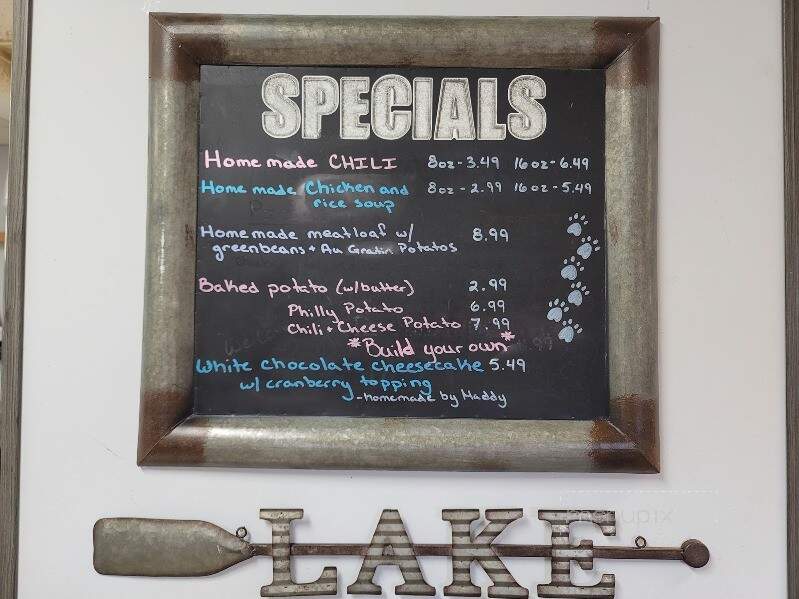 SPECIALS
Home made CHILI 8oz - 3.49 16oz - 6.49
Home made Chicken and 8oz - 2.99 16oz - 5.49
rice soup
Homemade meatloaf w/ 8.99
greenbeans + Au Gratin Potatos
Baked potato (w/butter) 2.99
Philly Potato 6.99
Chili + Cheese Potato 7.99
*Build your own*
White chocolate cheesecake 5.49
w/ cranberry topping
- homemade by Maddy
LAKE